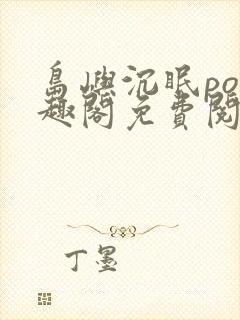 島嶼沉眠po
趣閣免費閱
丁墨